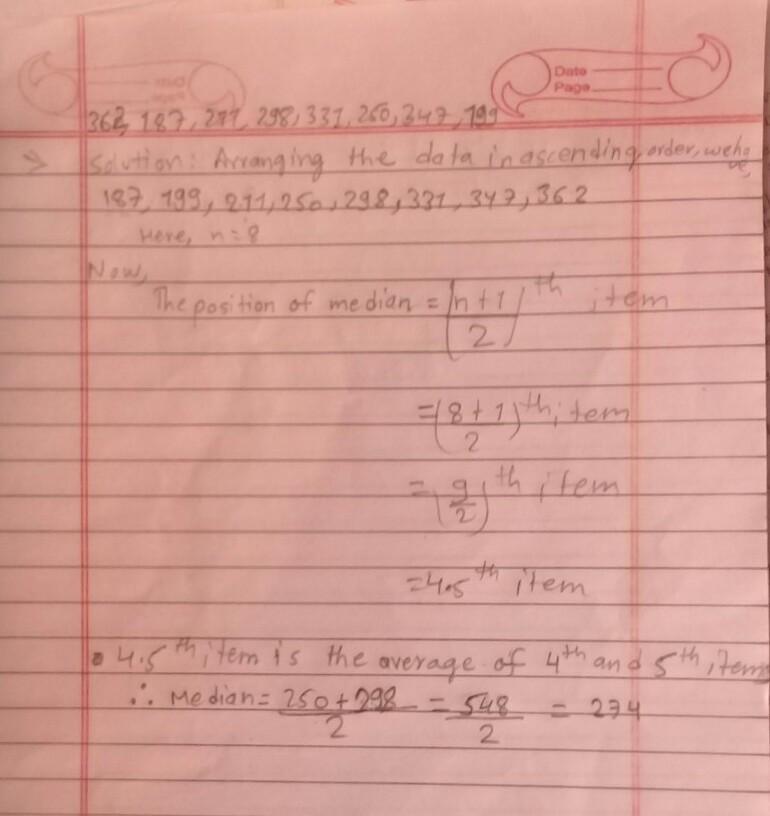 Date
Page
362, 187, 211, 298, 331, 250, 347, 199
Solution: Arranging the data in ascending order, we have,
187, 199, 211, 250, 298, 331, 347, 362
Here, n = 8
Now,
The position of median = (n+1/2)th item
= (8+1/2)th item
= (9/2)th item
= 4.5th item
• 4.5th item is the average of 4th and 5th items
∴ Median = 250+298/2 = 548/2 = 274